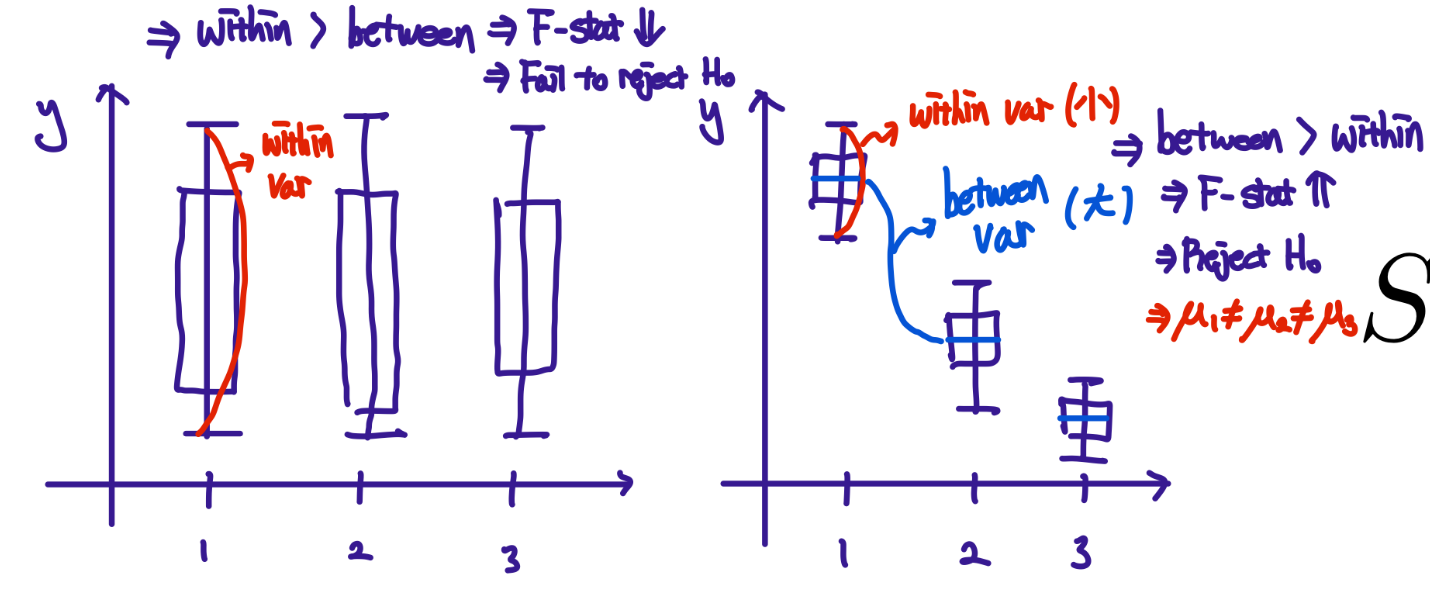 ⇒ within > between ⇒ F-stat ⇓
⇒ Fail to reject H₀
y
within
var
1
2
3
y
within var (小)
between
var (大)
⇒ between > within
⇒ F-stat ⇑
⇒ Reject H₀
⇒ μ₁ ≠ μ₂ ≠ μ₃
S
1
2
3